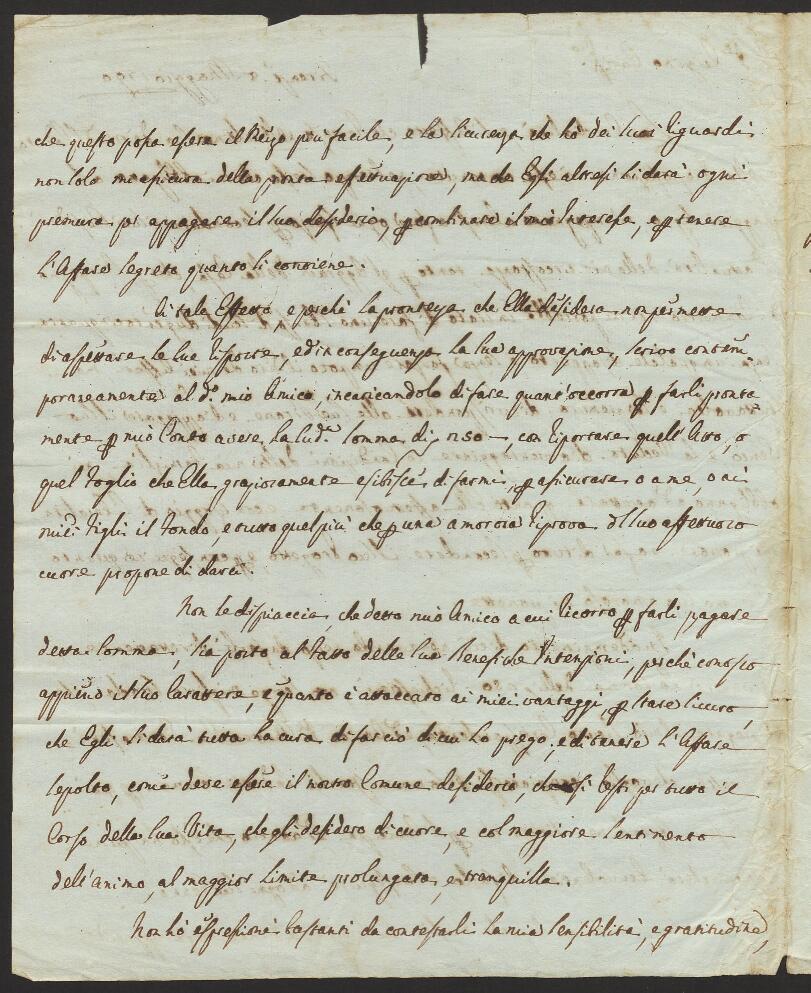 che questo possa essere il Mezzo più facile, e la sicurezza che hò dei suoi riguardi
non solo mi assicura della pronta effettuazione, ma che Egli altresì si darà ogni
premura per appagare il suo desiderio, p combinare il mio Interesse, e p tenere
l'Affare segreto quanto si conviene.
A tale Effetto, e perchè la prontezza che Ella desidera non permette
di aspettare le sue risposte, ed in conseguenza la sua approvazione, scrivo contem-
poraneamente al d.º mio Amico, incaricandolo di fare quant'occorra p farli pronta
mente p mio Conto avere la sud.ª somma di 250 —, con riportare quell'Atto, o
quel foglio che Ella graziosamente esibisce di farmi, p assicurare o a me, o ai
miei figli il fondo, e tutto quel più che p una amorosa riprova del suo affettuoso
cuore propone di darci.
Non le dispiaccia, che detto mio Amico a cui ricorro p farli pagare
detta somma, sia posto al fatto delle sue Benefiche Intenzioni, perchè conosco
appieno il suo Carattere, e quanto è attaccato ai miei vantaggi, p stare sicuro,
che Egli si darà tutta la cura di far ciò di cui lo prego, e di tenere l'Affare
sepolto, come deve essere il nostro Comune desiderio, che si resti per tutto il
Corso della sua Vita, che gli desidero di cuore, e col maggiore sentimento
dell'animo, al maggior limite prolungata, e tranquilla.
Non hò espressioni bastanti da contestarli la mia sensibilità, e gratitudine,